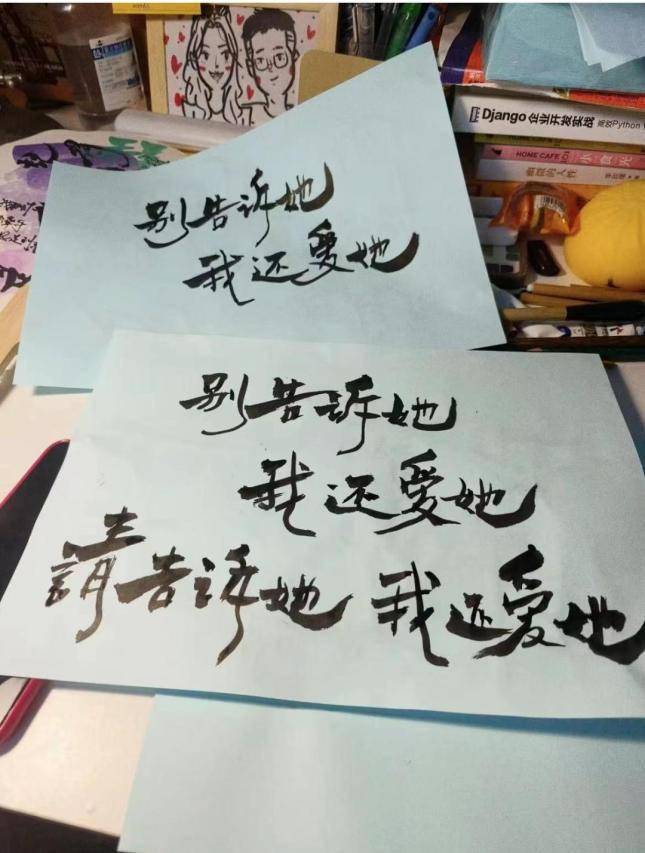 别告诉她
我还爱她
别告诉她
我还爱她
請告诉她 我还爱她
Django 企业开发实战 高效Python
HOME CAFE